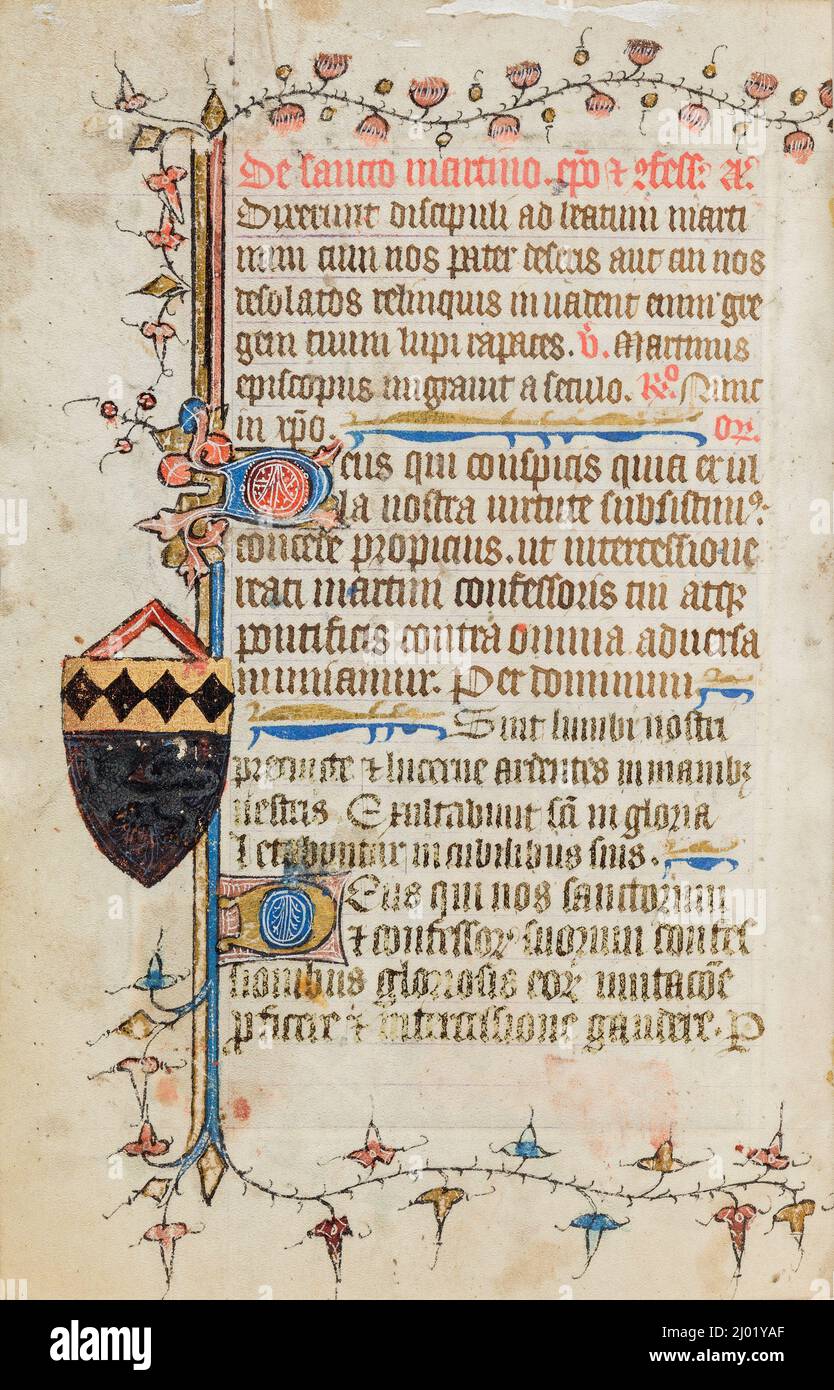 De sancto martino. ep̄o ⁊ ꝯfess: A̕.
Dixerunt discipuli ad beatum marti
num cum nos pater deseris aut cui nos
desolatos relinquis inuadent enim gre
gem tuum lupi rapaces. v̕. Martinus
episcopus migrauit a seculo. R̕o. Nunc
in xp̄o. Oꝝ.
Deus qui conspicis quia ex ul
la nostra uirtute subsistimꝰ:
concede propicius. ut intercessione
beati martini confessoris tui atqꝫ
pontificis contra omnia aduersa
muniamur. Per dominum
Sint lumbi nostri
precincte ⁊ lucerne ardentes in manibꝫ
uestris Exultabunt sc̄i in gloria
letabuntur in cubilibus suis.
Deus qui nos sanctorum
⁊ confessoꝝ suorum confes
sionibus gloriosis eoꝝ imitac̄oe
ꝓficere ⁊ intercessione gaudere. P
alamy
Image ID: 2J01YAF
www.alamy.com